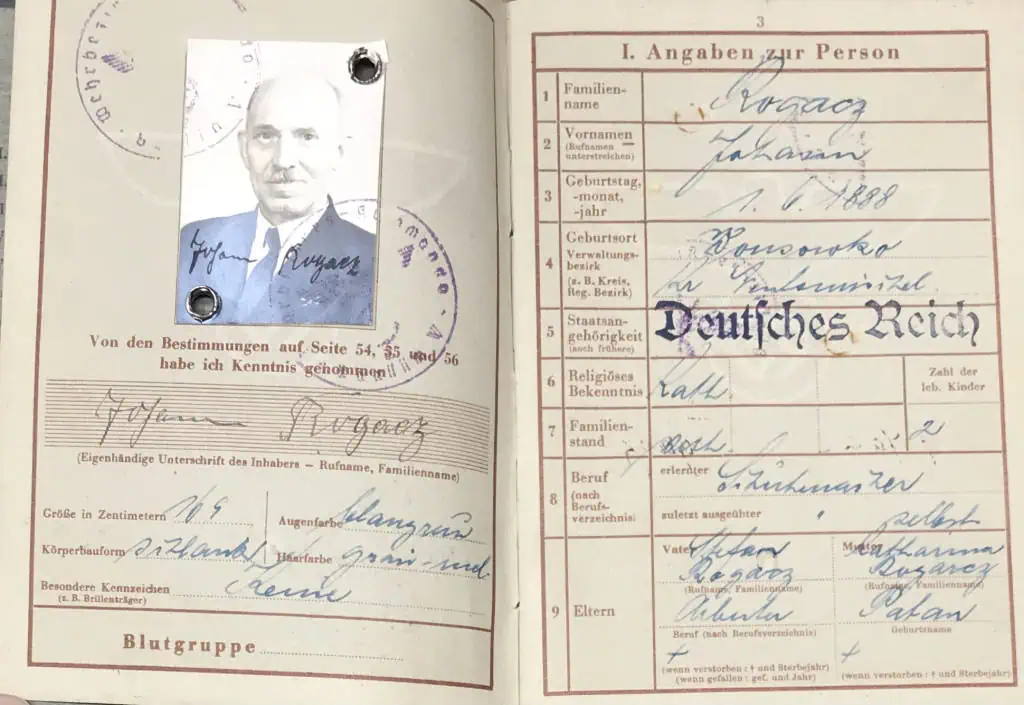 Johann Rogacz
Von den Bestimmungen auf Seite 54, 55 und 56
habe ich Kenntnis genommen
Johann Rogacz
(Eigenhändige Unterschrift des Inhabers – Rufname, Familienname)
Größe in Zentimetern 169 Augenfarbe blaugrün
Körperbauform schlank Haarfarbe grau-mel
Besondere Kennzeichen Keine
(z. B. Brillenträger)
Blutgruppe
3
I. Angaben zur Person
1 Familien-
name Rogacz
2 Vornamen Johann
(Rufnamen
unterstreichen)
3 Geburtstag,
-monat,
-jahr 1. 6. 1888
4 Geburtsort
Verwaltungs-
bezirk
(z. B. Kreis,
Reg. Bezirk)
5 Staatsan-
gehörigkeit Deutsches Reich
(auch frühere)
6 Religiöses
Bekenntnis Kath.
Zahl der
leb. Kinder
7 Familien-
stand verh. 2
8 Beruf
(nach
Berufs-
verzeichnis)
erlernter Schuhmacher
zuletzt ausgeübter " selbst
9 Eltern
Vater Stefan
Rogacz
(Rufname, Familienname)
Arbeiter
Beruf (nach Berufsverzeichnis)
+
(wenn verstorben: † und Sterbejahr)
(wenn gefallen: gef. und Jahr)
Mutter Katharina
Rogarcz
(Rufname, Familienname)
Patan
Geburtsname
+
(wenn verstorben: † und Sterbejahr)